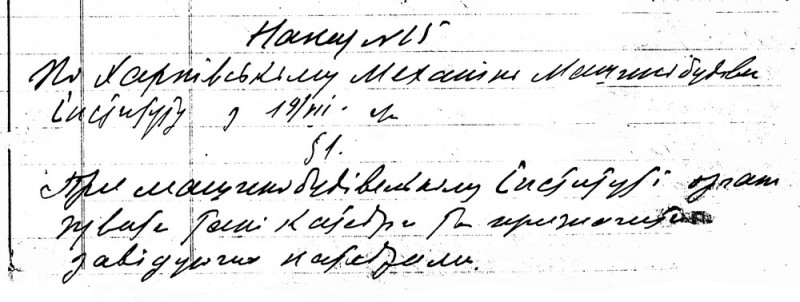 Наказ №15
По Харківському Механіко Машинобудівн
інституту з 19/VII.
§1.
При машинобудівельному інституті орган
зувати такі катедри та призначити
завідуючих катедрами.